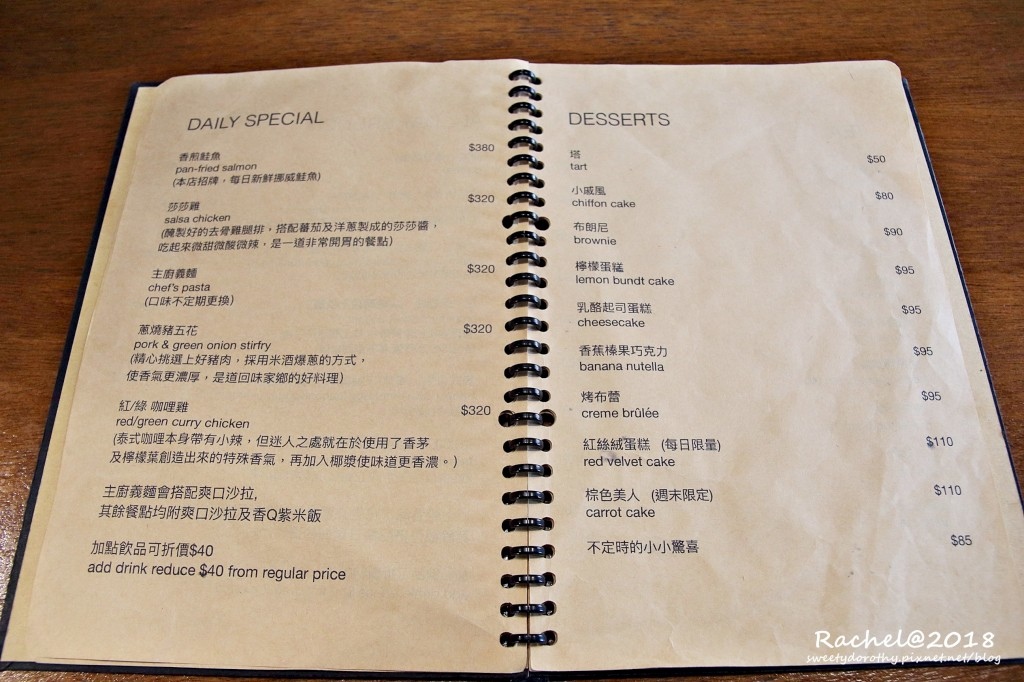 DAILY SPECIAL
香煎鮭魚 $380
pan-fried salmon
(本店招牌，每日新鮮挪威鮭魚)
莎莎雞 $320
salsa chicken
(醃製好的去骨雞腿排，搭配蕃茄及洋蔥製成的莎莎醬，
吃起來微甜微酸微辣，是一道非常開胃的餐點)
主廚義麵 $320
chef's pasta
(口味不定期更換)
蔥燒豬五花 $320
pork & green onion stirfry
(精心挑選上好豬肉，採用米酒爆蔥的方式，
使香氣更濃厚，是道回味家鄉的好料理)
紅/綠 咖哩雞 $320
red/green curry chicken
(泰式咖哩本身帶有小辣，但迷人之處就在於使用了香茅
及檸檬葉創造出來的特殊香氣，再加入椰漿使味道更香濃。)
主廚義麵會搭配爽口沙拉,
其餘餐點均附爽口沙拉及香Q紫米飯
加點飲品可折價$40
add drink reduce $40 from regular price
DESSERTS
塔 $50
tart
小戚風 $80
chiffon cake
布朗尼 $90
brownie
檸檬蛋糕 $95
lemon bundt cake
乳酪起司蛋糕 $95
cheesecake
香蕉榛果巧克力 $95
banana nutella
烤布蕾 $95
creme brûlée
紅絲絨蛋糕 (每日限量) $110
red velvet cake
棕色美人 (週末限定) $110
carrot cake
不定時的小小驚喜 $85
Rachel@2018
sweetydorothy.pixnet.net/blog